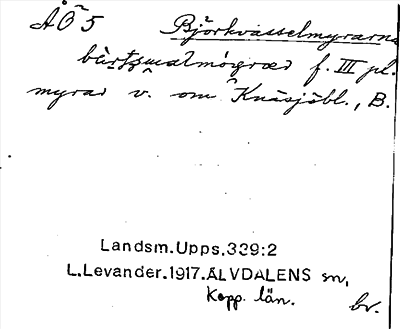 ÅÖ5 Björkvasselmyrarna
f. III pl.
myrar v. om Knäsjöbl., B.
Landsm.Upps.339:2
L.Levander.1917.ÄLVDALENS sn,
Kopp. län.
br.